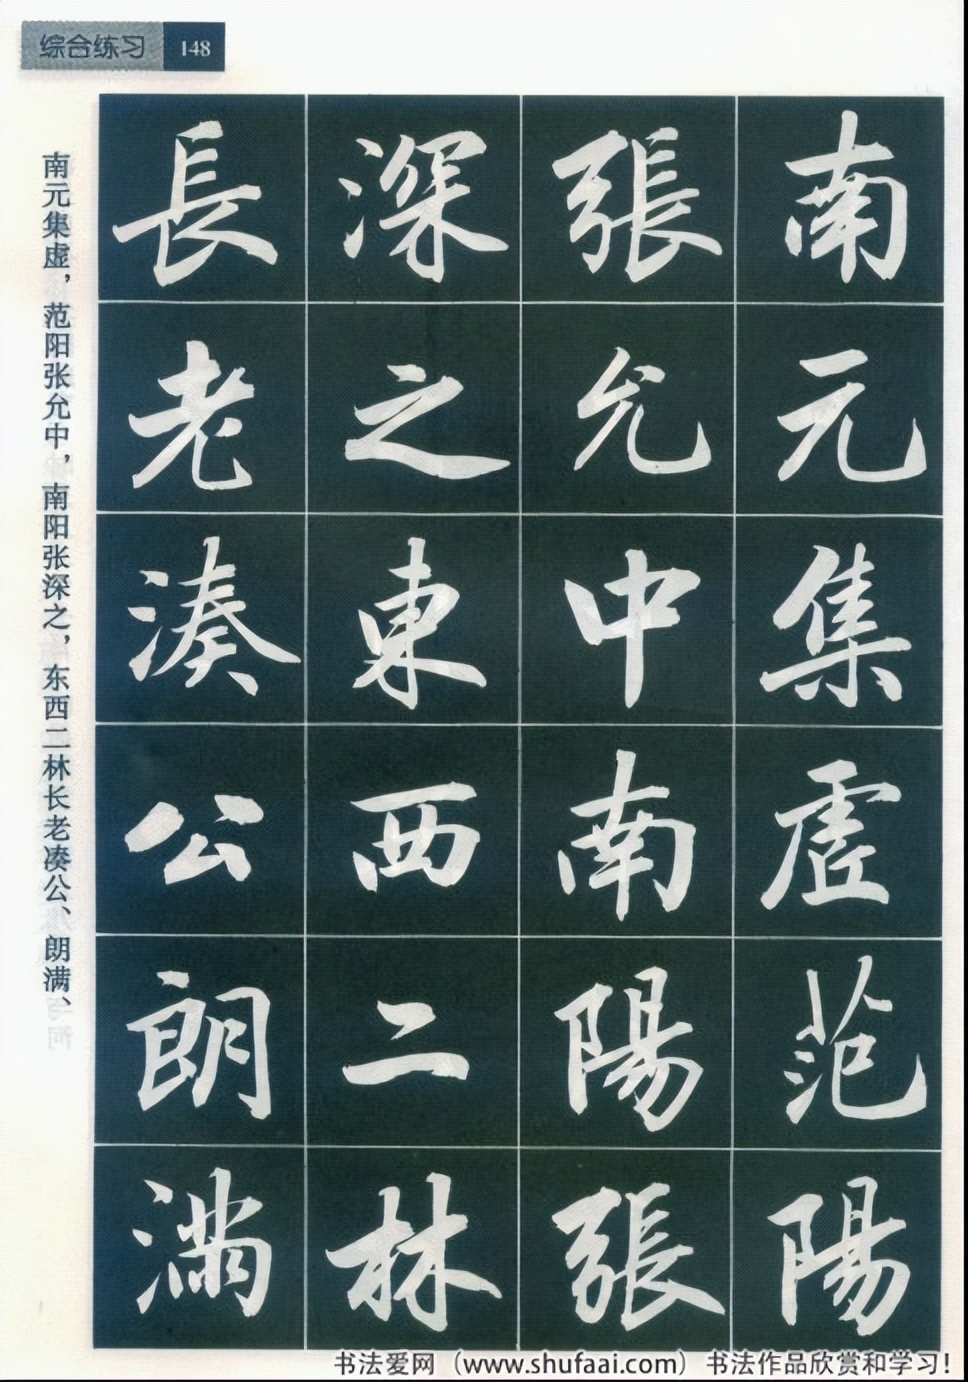 综合练习 148
南元集虚范阳
張允中南陽張
深之東西二林
長老湊公朗满
南元集虚，范阳张允中，南阳张深之，东西二林长老凑公、朗满、
书法爱网（www.shufaai.com）书法作品欣赏和学习！